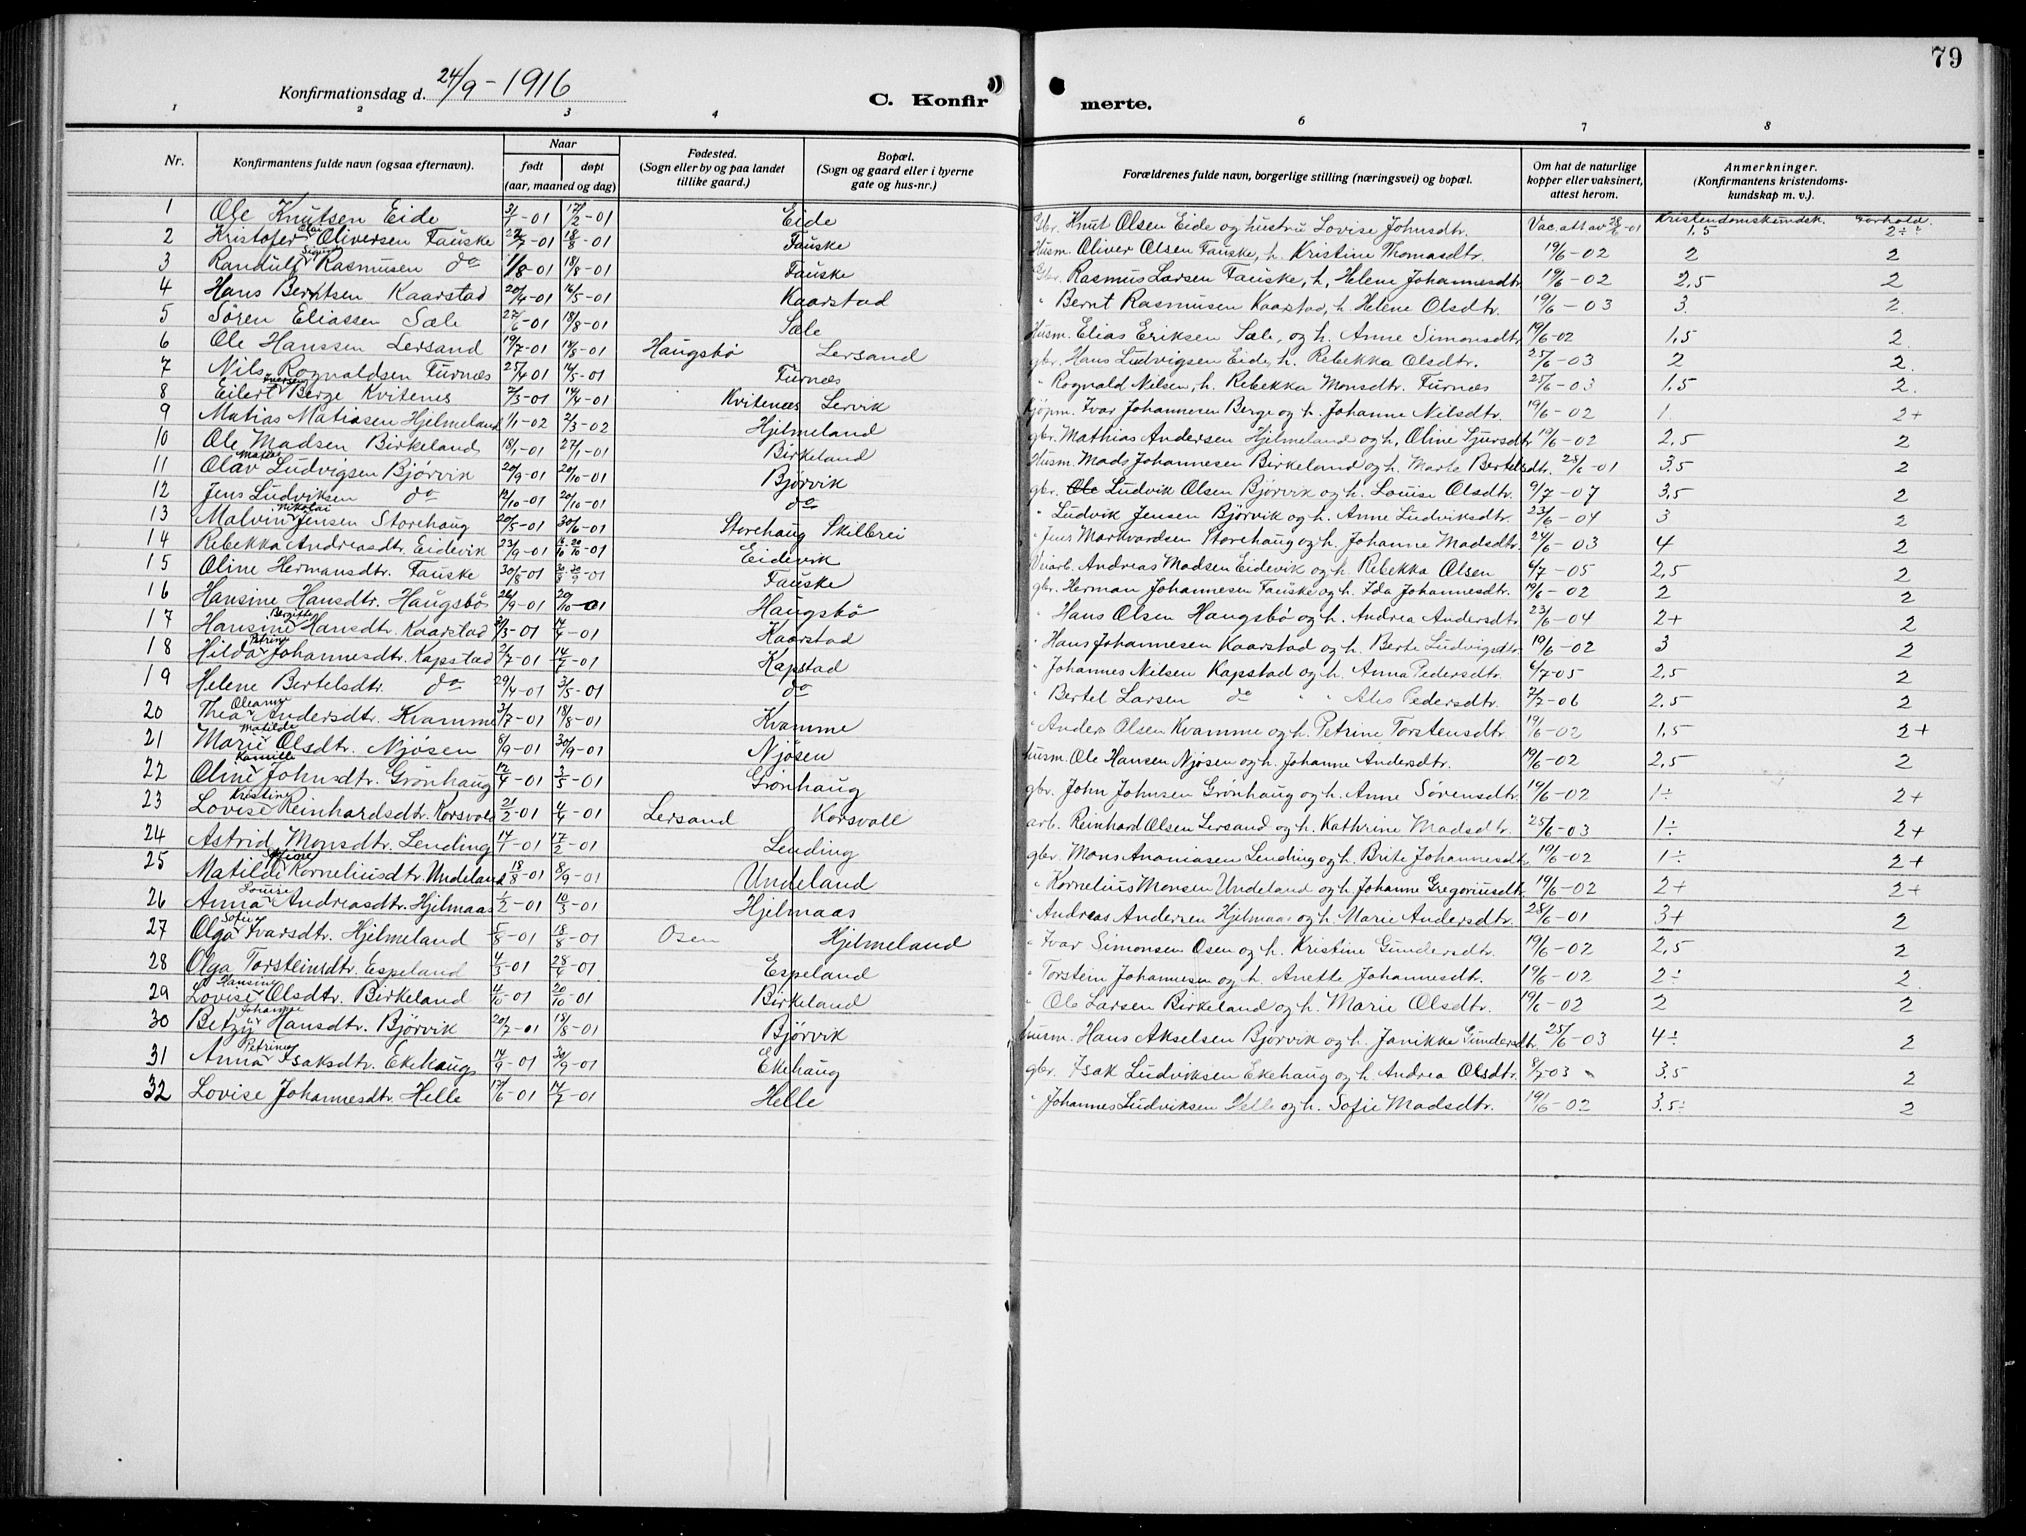 79
Konfirmationsdag d. 24/9 - 1916
C. Konfirmerte.
1 2 3 4 6 7 8
Nr. | Konfirmantens fulde navn (ogsaa efternavn). | Naar født døpt (aar, maaned og dag) | Fødested. (Sogn eller by og paa landet tillike gaard.) | Bopæl. (Sogn og gaard eller i byerne gate og hus-nr.) | Forældrenes fulde navn, borgerlige stilling (næringsvei) og bopæl. | Om hat de naturlige kopper eller vaksinert, attest herom. | Anmerkninger. (Konfirmantens kristendoms-kundskap m. v.).
Kristendomskundsk. Forhold.
1 Ole Knutsen Eide 3/1-01 17/2-01 Eide Gbr. Knut Olsen Eide og hustru Lovise Johnsdtr. Vac. att av 28/6-01 1,5 2÷
2 Kristofer Olai Oliversen Fauske 22/7-01 18/8-01 Fauske Husm. Oliver Olsen Fauske, h. Kristine Thomasdtr. 19/6-02 2 2
3 Randulf Sigurd Rasmusen do 1/8-01 18/8-01 Fauske Gbr. Rasmus Larsen Fauske, h, Helene Johannesdtr 19/6-02 2,5 2
4 Hans Berntsen Kaarstad 20/4-01 16/5-01 Kaarstad " Bernt Rasmusen Kaarstad, h Helene Olsdtr. 19/6-03 3. 2.
5 Søren Eliassen Sæle 27/6-01 18/8-01 Sæle Husm. Elias Eriksen Sæle, og h. Anne Simonsdtr 19/6-02 1,5 2.
6 Ole Hanssen Lersand 19/7-01 18/8-01 Haugsbø Lersand gbr. Hans Ludvigsen Eide, h. Rebekka Olsdtr. 25/6-03 2 2.
7 Nils Rognaldsen Furnæs 25/4 01 16/5-01 Furnæs " Rognald Nilsen, h. Rebekka Monsdtr. Furnæs 25/6-03 1,5 2.
8 Eilert Iversen Berge Kvitenes 2/3-01 14/4-01 Kvitenæs Lervik Kjøpm. Ivar Johannesen Berge og h. Johanne Nilsdtr. 19/6-02 1. 2+
9 Matias Matiasen Hjelmeland 1/1-02 2/3-02 Hjelmeland gbr. Mathias Andersen Hjelmeland og h, Oline Sjursdtr 19/6-02 2,5 2
10 Ole Madsen Birkeland 18/1-01 27/1-01 Birkeland Husm. Mads Johannesen Birkeland og h. Marte Bertelsdtr. 28/6-01 3,5 2
11 Olav Matias Ludvigsen Bjørvik 20/9-01 20/10-01 Bjørvik gbr. Ole Ludvik Olsen Bjørvik og h. Louise Olsdtr. 9/7-07 3,5 2
12 Jens Ludviksen do 12/10-01 20/10-01 do " Ludvik Jensen Bjørvik og h. Anne Ludviksdtr. 23/6-04 3 2
13 Malvin Nikolai Jensen Storehaug 20/5-01 30/6-01 Storehaug Skilbrei " Jens Markvardsen Storehaug og h. Johanne Madsdtr. 24/6-03 4 2
14 Rebekka Andreasdtr. Eidevik 23/9-01 16/10 20/10-01 Eidevik Veiarb. Andreas Madsen Eidevik og h. Rebekka Olsen 6/7-05 2,5 2
15 Oline Hermansdtr. Fauske 30/8-01 20/9-01 Fauske gbr. Herman Johannesen Fauske og h. Ida Johannesdtr. 19/6-02 2 2
16 Hansine Hansdtr. Haugsbø 26/9-01 20/10-01 Haugsbø " Hans Olsen Haugsbø og h. Andrea Andersdtr 23/6-04 2+ 2
17 Hansine Bergitte Hansdtr. Kaarstad 2/3-01 14/4-01 Kaarstad " Hans Johannesen Kaarstad og h. Berte Ludvigsdtr 19/6-02 3 2
18 Hilda Petrine Johannesdtr. Kapstad 2/7-01 14/7-01 Kapstad " Johannes Nilsen Kapstad og h. Anna Pedersdtr. 6/7-05 2,5 2
19 Helene Bertelsdtr. do 29/4-01 3/5-01 do " Bertel Larsen do " " Ales Pedersdtr. 7/7-06 2,5 2
20 Thea Oleanna Andersdtr. Kvamme 3/7-01 18/8-01 Kvamme " Anders Olsen Kvamme og h. Petrine Torstensdtr. 19/6-02 1,5 2+
21 Marie Matilde Olsdtr. Njøsen 8/9-01 30/9-01 Njøsen husm. Ole Hansen Njøsen og h. Johanne Andersdtr. 19/6-02 2,5 2
22 Oline Kamille Johnsdtr. Grønhaug 12/4-01 2/5-01 Grønhaug gbr. John Johnsen Grønhaug og h. Anne Sørensdtr. 19/6-02 1÷ 2+
23 Lovise Kristine Reinhardsdtr. Korsvold 21/2-01 4/4-01 Lersand Korsvoll arb. Reinhard Olsen Lersand og h. Kathrine Madsdtr. 25/6-03 1÷ 2+
24 Astrid Monsdtr. Lending 14/1-01 17/2-01 Lending gbr. Mons Ananiasen Lending og h. Brite Johannesdtr. 19/6-02 1÷ 2+
25 Matilde Kornelíusdtr. Undeland 18/8-01 8/9-01 Undeland " Kornelius Monsen Undeland og h. Johanne Gregoriusdtr. 19/6-02 2+ 2+
26 Anna Louise Andreasdtr. Hjelmaas 1/2-01 10/3-01 Hjelmaas " Andreas Andersen Hjelmaas og h. Marie Andersdtr. 28/6-01 3+ 2
27 Olga Sofie Ivarsdtr. Hjelmeland 5/8-01 18/8-01 Osen Hjelmeland " Ivar Simonsen Osen og h. Kristine Gundersdtr. 19/6-02 2,5 2
28 Olga Torsteinsdtr. Espeland 4/3-01 28/4-01 Espeland " Torstein Johannesen og h. Anette Johannesdtr. 19/6-02 2÷ 2.
29 Lovise Hansine Olsdtr. Birkeland 4/10-01 20/10-01 Birkeland " Ole Larsen Birkeland og h. Marie Olsdtr. 19/6-02 2 2
30 Betzy Johanne Hansdtr. Bjørvik 20/7-01 18/8-01 Bjørvik husm. Hans Akselsen Bjørvik og h. Janikke Gundersdtr. 25/6-03 4÷ 2
31 Anna Petrine Isaksdtr. Ekehaug 14/9-01 30/9-01 Ekehaug gbr. Isak Ludviksen Ekehaug og h. Andrea Olsdtr. 8/7-03 3,5 2
32 Lovise Johannesdtr. Helle 17/6-01 14/7-01 Helle " Johannes Ludviksen Helle og h. Sofie Madsdtr. 19/6-02 3,5÷ 2